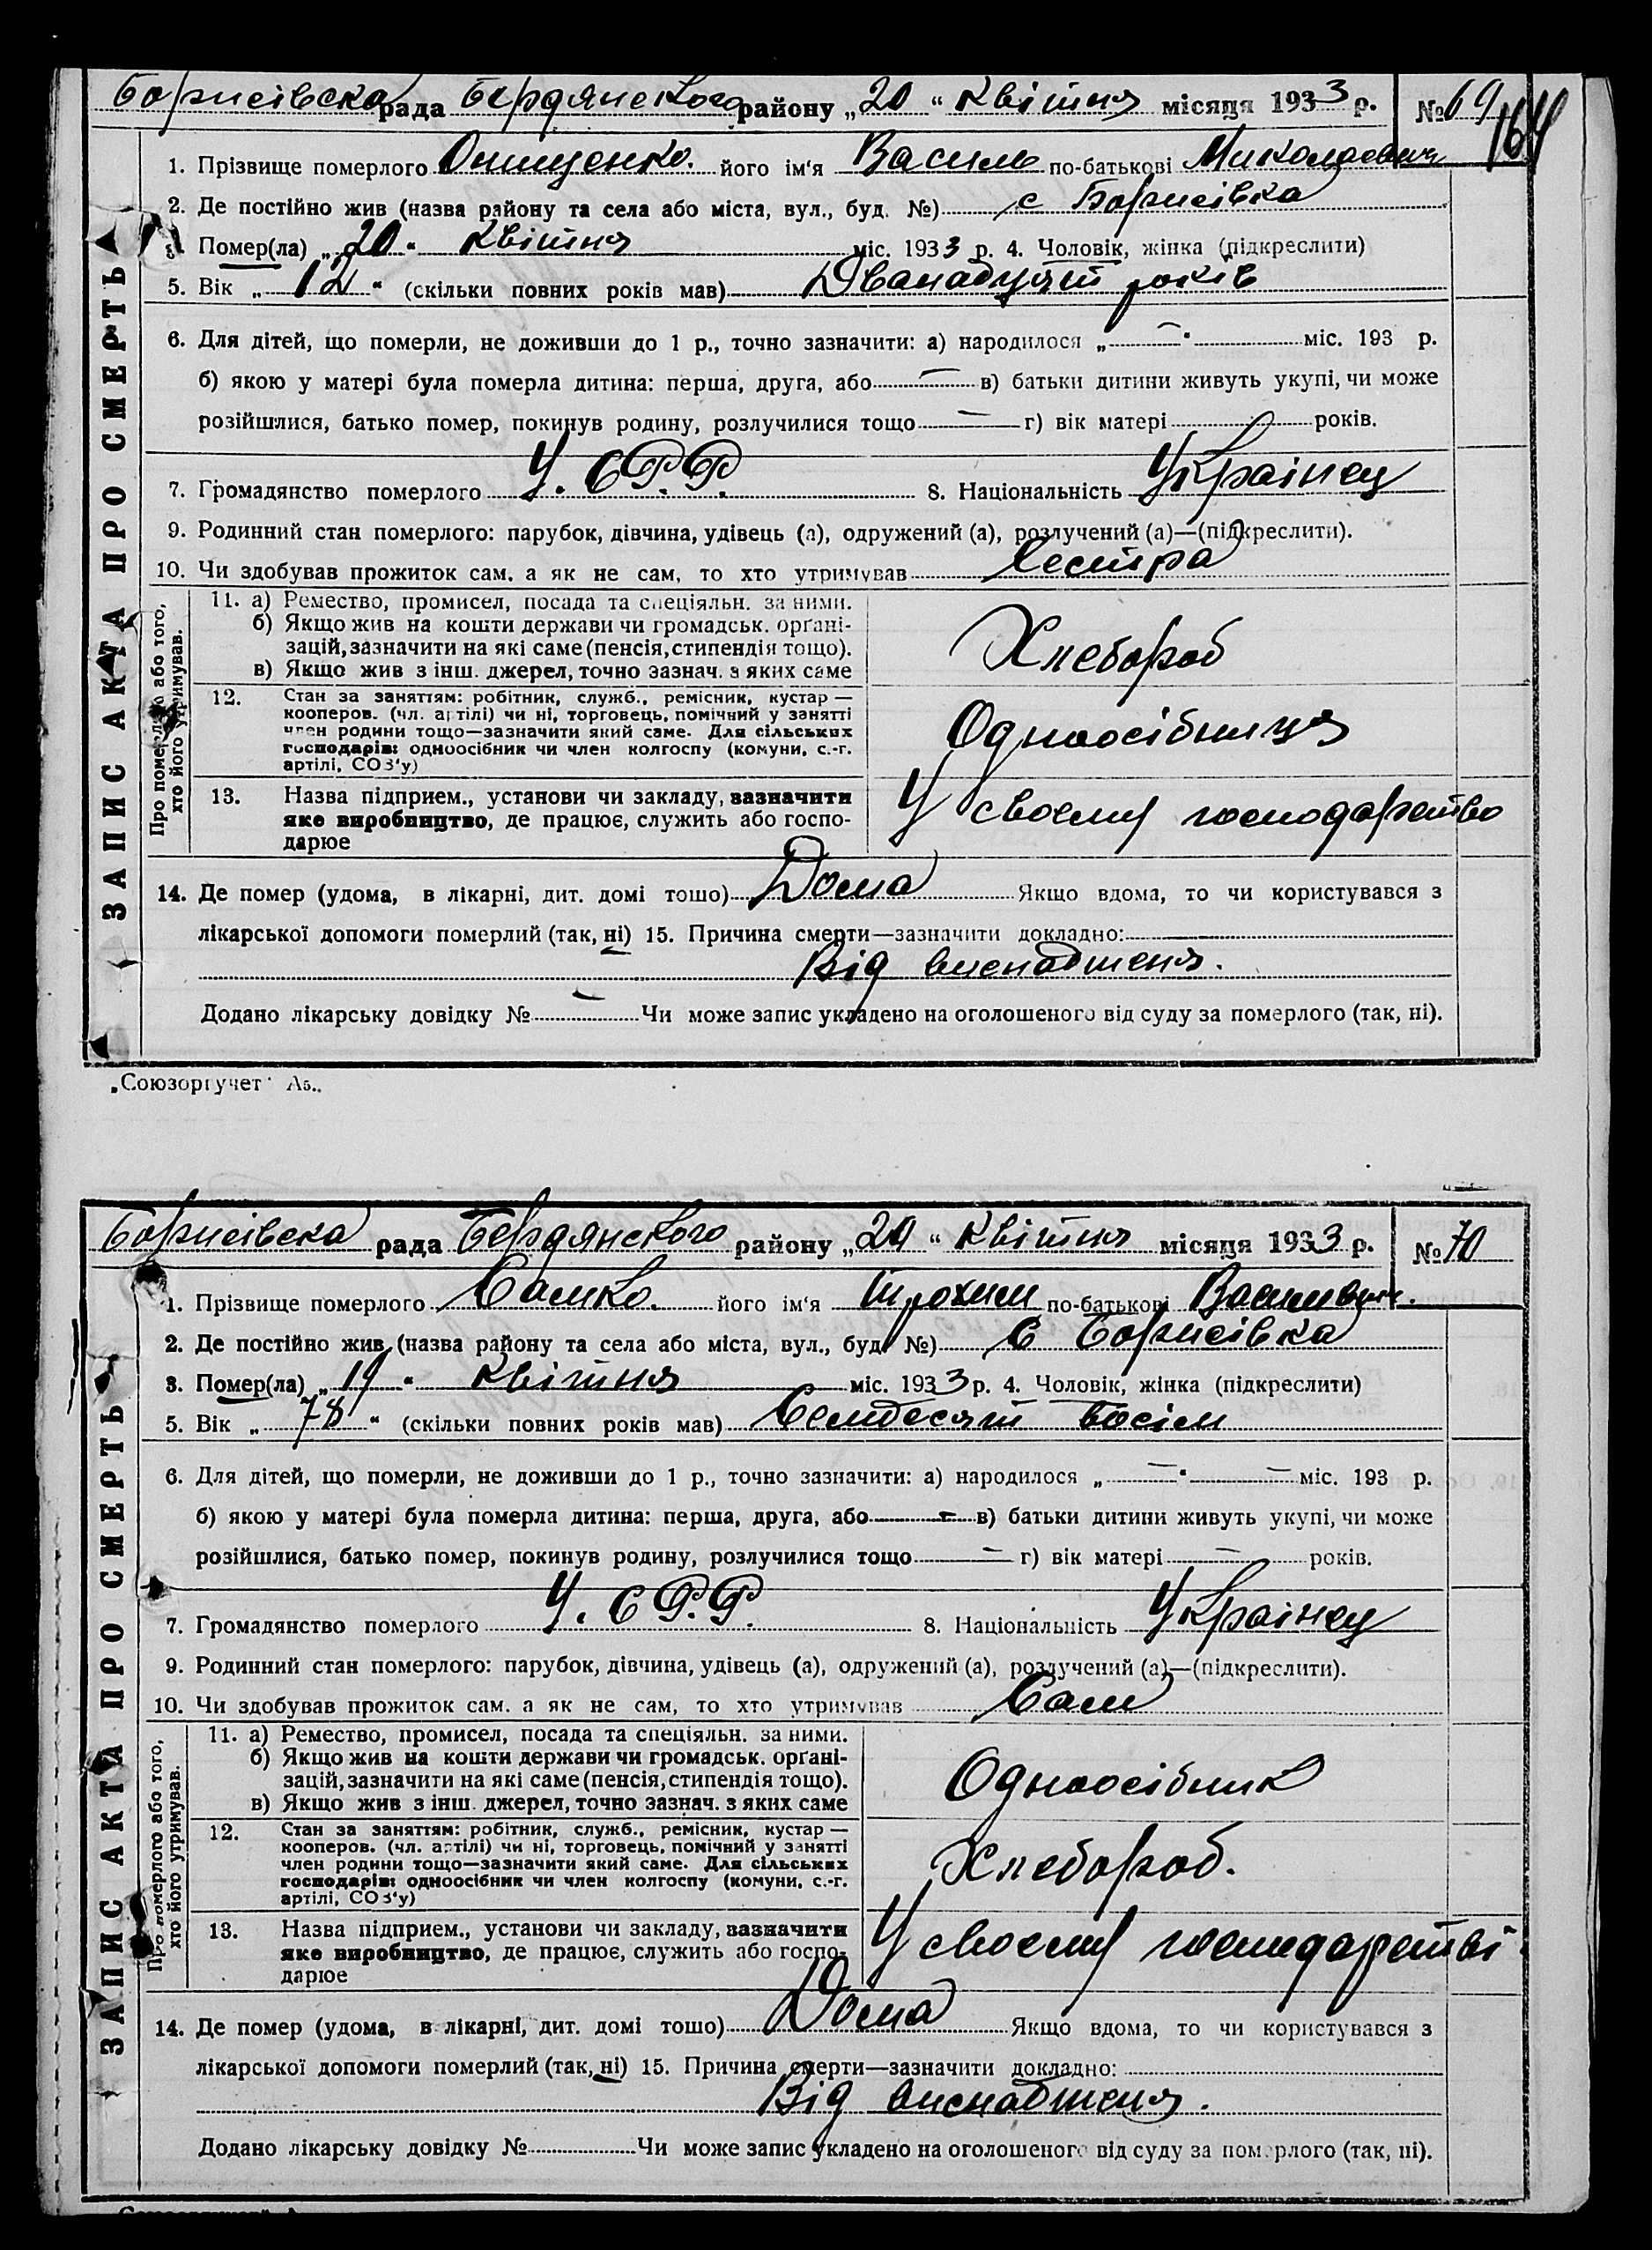 Борисівска рада Бердянського району „20“ квітня місяця 1933 р. № 69
164
1. Прізвище померлого Онищенко. його ім‘я Василь по-батькові Миколаевич
2. Де постійно жив (назва району та села або міста, вул., буд. №) с Борисівка
3. Помер(ла) „20“ квітня міс. 1933 р. 4. Чоловік, жінка (підкреслити)
5. Вік „12“ (скільки повних років мав) Дванадцят років
6. Для дітей, що померли, не доживши до 1 р., точно зазначити: а) народилося „—“ міс. 193 р.
б) якою у матері була померла дитина: перша, друга, або — в) батьки дитини живуть укупі, чи може
розійшлися, батько помер, покинув родину, розлучилися тощо — г) вік матері років.
7. Громадянство померлого У. С.Р.Р. 8. Національність Українец
9. Родинний стан померлого: парубок, дівчина, удівець (а), одружений (а), розлучений (а)—(підкреслити).
10. Чи здобував прожиток сам. а як не сам, то хто утримував Сестра
ЗАПИС АКТА ПРО СМЕРТЬ
Про померлого або того,
хто його утримував.
11. а) Ремество, промисел, посада та спеціяльн. за ними.
б) Якщо жив на кошти держави чи громадськ. орґані-
зацій, зазначити на які саме (пенсія, стипендія тощо).
в) Якщо жив з інш. джерел, точно зазнач. з яких саме
Хлебороб
12. Стан за заняттям: робітник, служб., ремісник, кустар —
кооперов. (чл. артілі) чи ні, торговець, помічний у занятті
член родини тощо—зазначити який саме. Для сільських
господарів: одноосібник чи член колгоспу (комуни, с.-г.
артілі, СОЗ‘у)
Одноосібниця
13. Назва підприем., установи чи закладу, зазначити
яке виробництво, де працює, служить або госпо-
дарює
У своєму господарство
14. Де помер (удома, в лікарні, дит. домі тошо) Дома Якщо вдома, то чи користувався з
лікарської допомоги померлий (так, ні) 15. Причина смерти—зазначити докладно:
Від виснабженя.
Додано лікарську довідку № — Чи може запис укладено на оголошеного від суду за померлого (так, ні).
„Союзоргучет“ Аз..
Борисівска рада Бердянского району „20“ квітня місяця 1933 р. № 70
1. Прізвище померлого Самко. його ім‘я Трохим по-батькові Васильвич.
2. Де постійно жив (назва району та села або міста, вул., буд. №) С Борисівка
3. Помер(ла) „19“ квітня міс. 1933 р. 4. Чоловік, жінка (підкреслити)
5. Вік „78“ (скільки повних років мав) Семдесят восім
6. Для дітей, що померли, не доживши до 1 р., точно зазначити: а) народилося „—“ — міс. 193 р.
б) якою у матері була померла дитина: перша, друга, або — в) батьки дитини живуть укупі, чи може
розійшлися, батько помер, покинув родину, розлучилися тощо — г) вік матері — років.
7. Громадянство померлого У. С Р.Р. 8. Національність Українец
9. Родинний стан померлого: парубок, дівчина, удівець (а), одружений (а), розлучений (а)—(підкреслити).
10. Чи здобував прожиток сам. а як не сам, то хто утримував Сам
ЗАПИС АКТА ПРО СМЕРТЬ
Про померлого або того,
хто його утримував.
11. а) Ремество, промисел, посада та спеціяльн. за ними.
б) Якщо жив на кошти держави чи громадськ. орґані-
зацій, зазначити на які саме (пенсія, стипендія тощо).
в) Якщо жив з інш. джерел, точно зазнач. з яких саме
Одноосібник
12. Стан за заняттям: робітник, служб., ремісник, кустар —
кооперов. (чл. артілі) чи ні, торговець, помічний у занятті
член родини тощо—зазначити який саме. Для сільських
господарів: одноосібник чи член колгоспу (комуни, с.-г.
артілі, СОЗ‘у)
Хлебороб.
13. Назва підприем., установи чи закладу, зазначити
яке виробництво, де працює, служить або госпо-
дарює
У своєму господарстві
14. Де помер (удома, в лікарні, дит. домі тошо) Дома Якщо вдома, то чи користувався з
лікарської допомоги померлий (так, ні) 15. Причина смерти—зазначити докладно:
Від виснабженя.
Додано лікарську довідку № Чи може запис укладено на оголошеного від суду за померлого (так, ні).